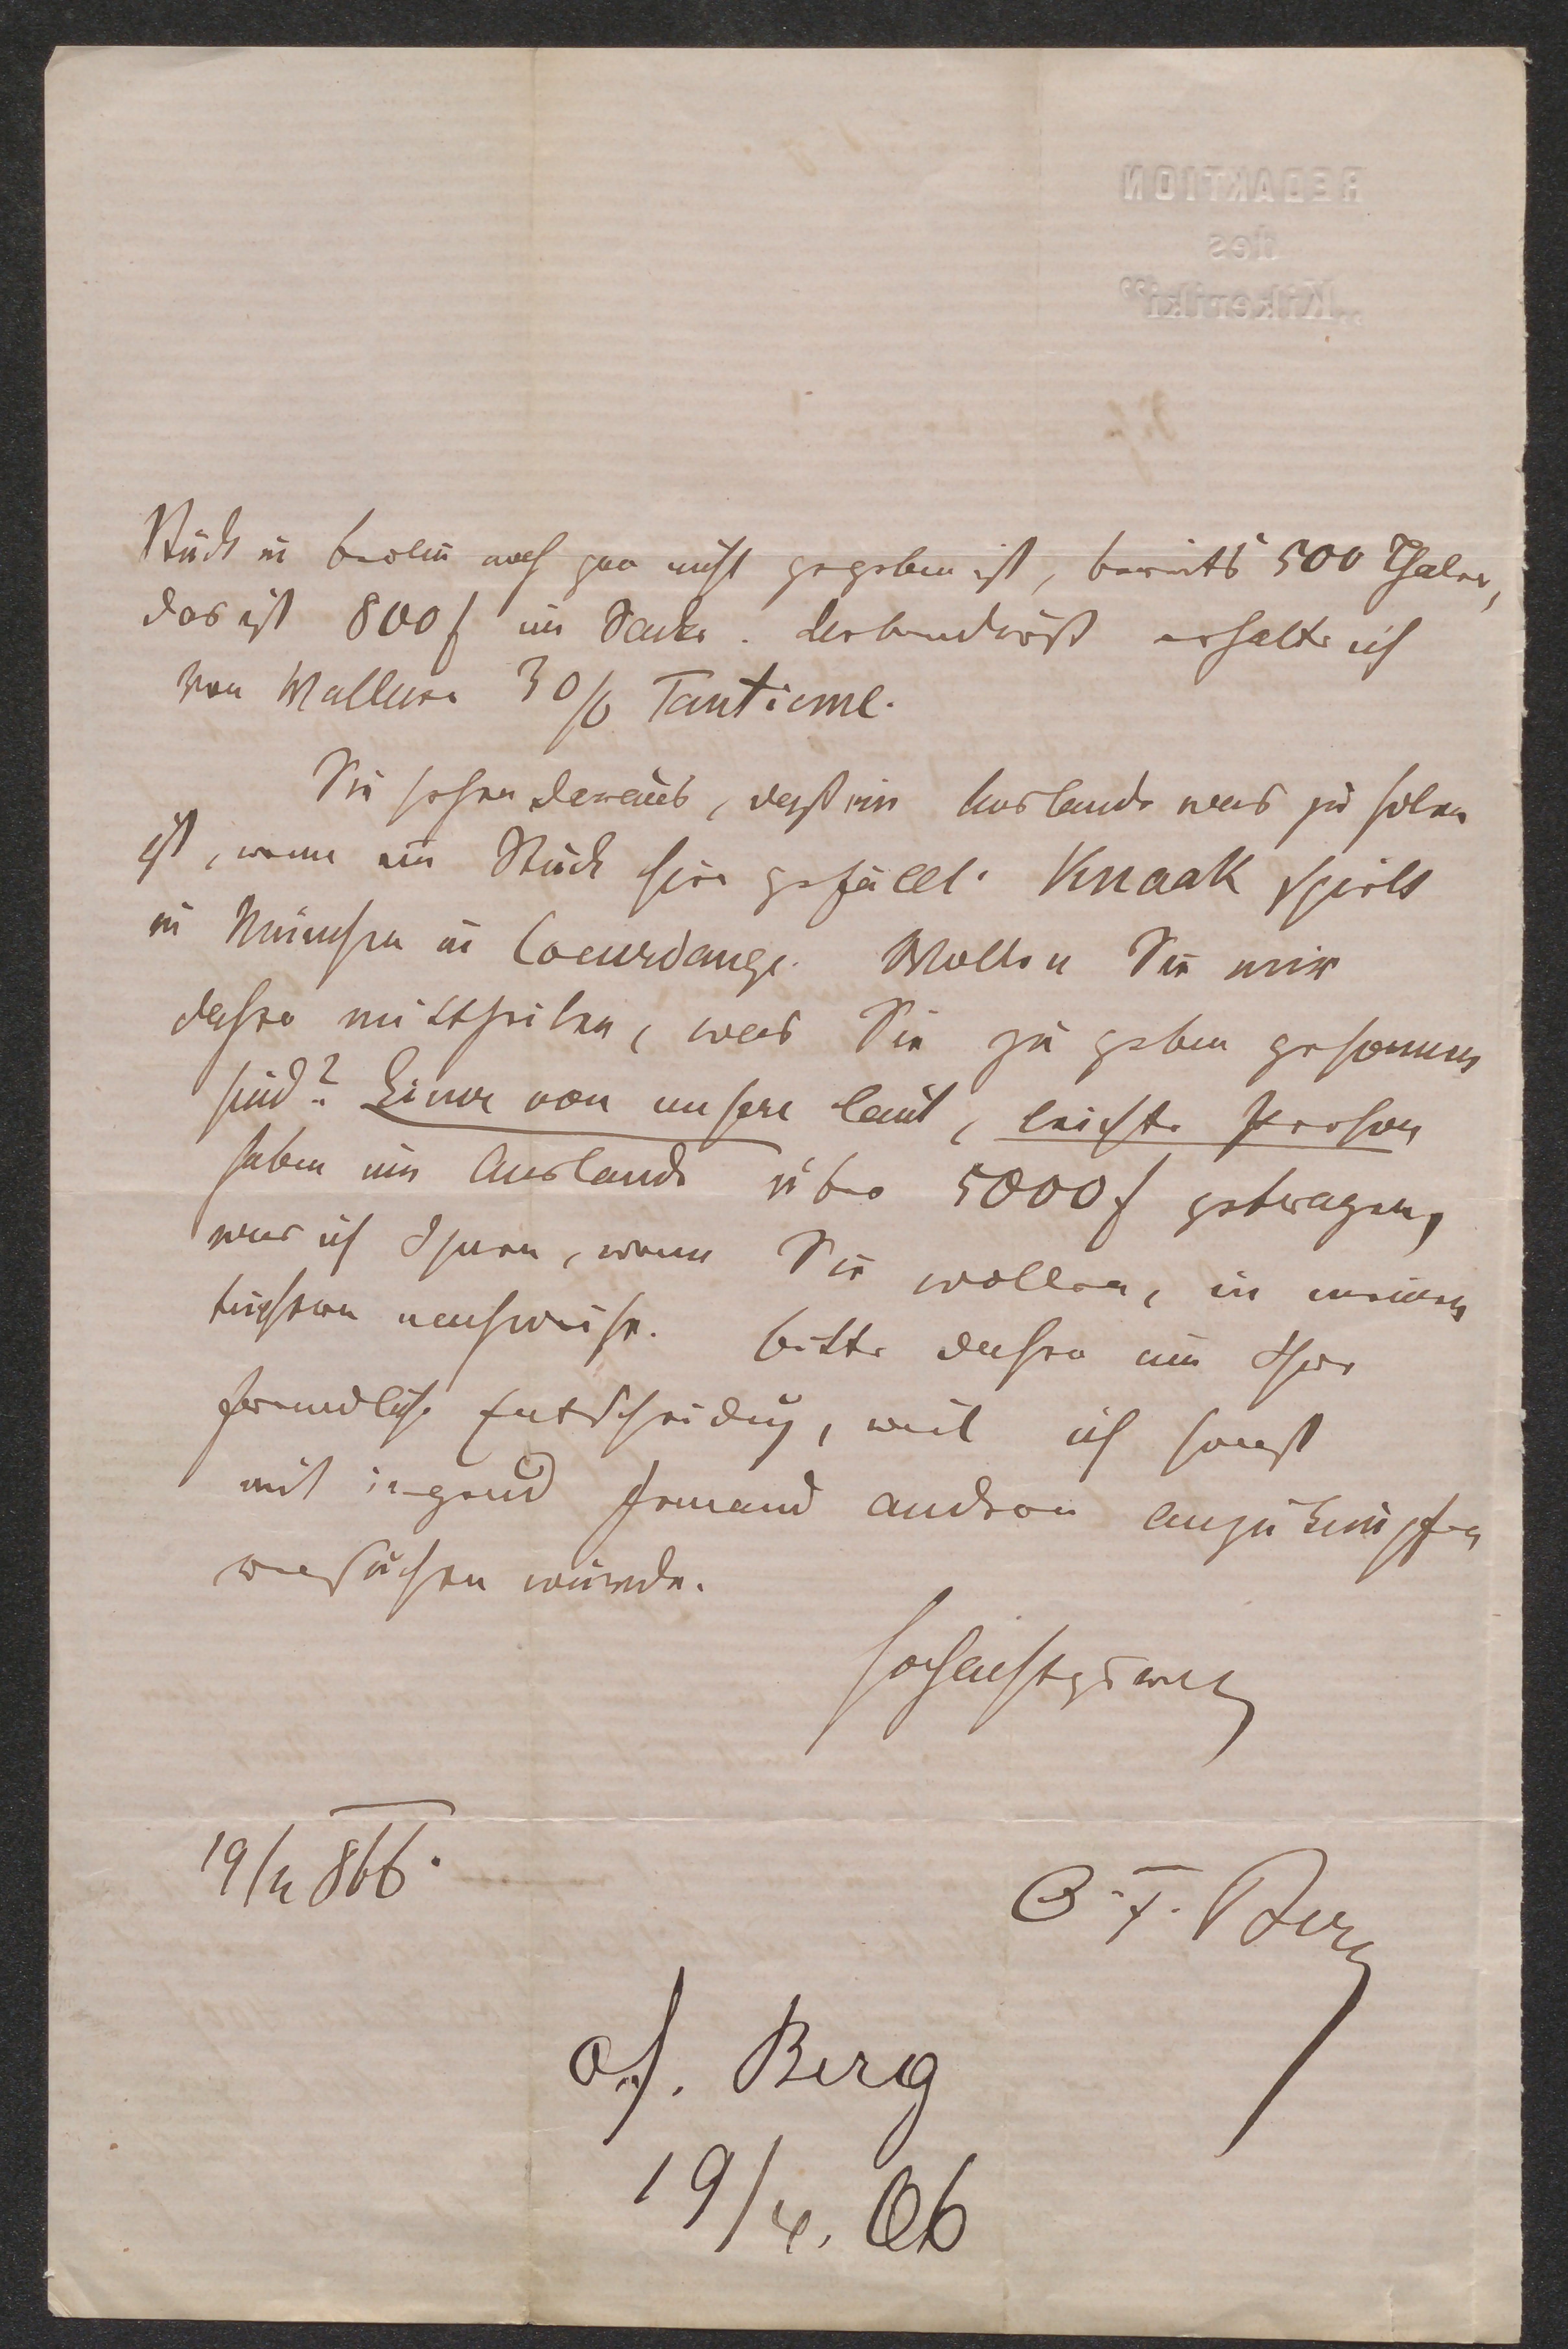 REDAKTION
des
„Kikeriki"
Stück in Berlin noch gar nicht gegeben ist, bereits 500 Thaler,
das ist 800 f im Sacke. erhalte ich
von Wallner 3% Tantieme.
Sie sehen daraus, daß im Auslande was zu holen
ist, wenn ein Stück hier gefällt. Knaak spielt
in München in Wollen Sie mir
daher mittheilen, was Sie zu geben gesonnen
sind? Einer von unsere Leut, leichte Person
haben im Auslande über 5000 f getragen,
was ich Ihnen, wenn Sie wollen, in meinen
Büchern nachweise. Bitte daher um Ihre
freundliche Entscheidung, weil ich sonst
mit irgend Jemand andren anzuknüpfen
versuchen würde.
Hochachtungsvoll
19/4 866.
O. F. Berg
O. F. Berg
19/4. 66